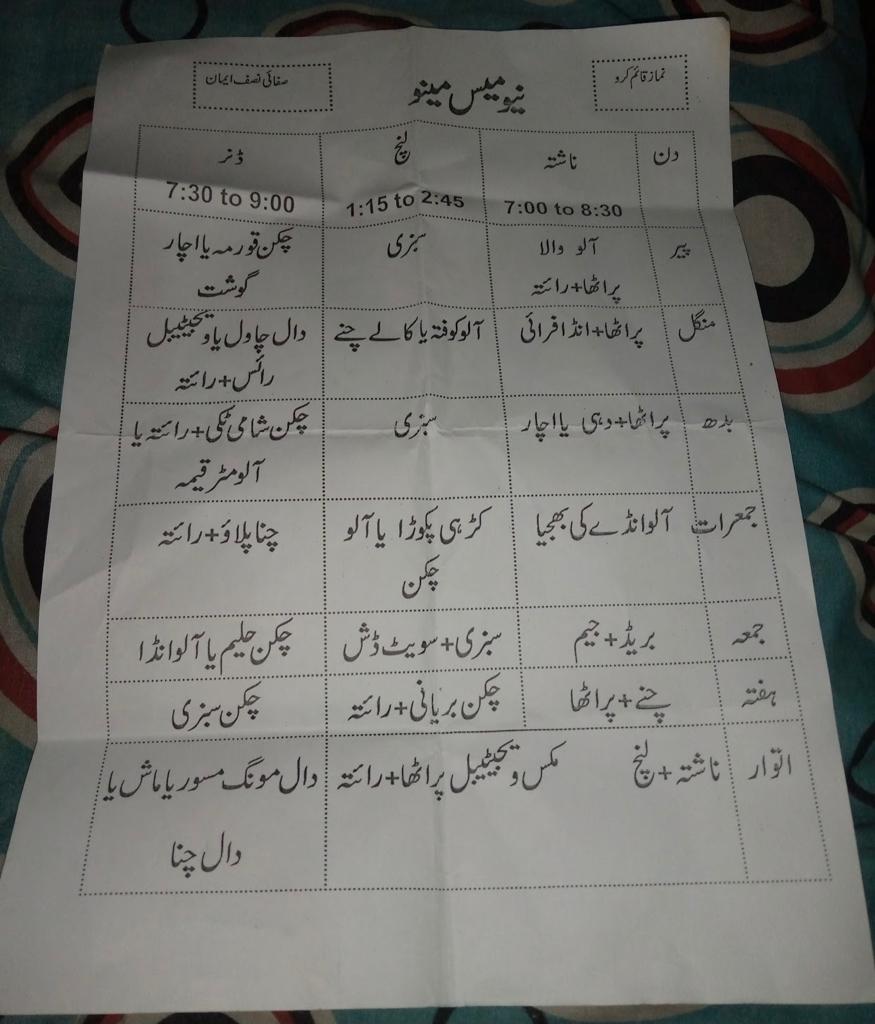 نماز قائم کرو
نیو میس مینو
صفائی نصف ایمان
دن
ناشتہ
7:00 to 8:30
لنچ
1:15 to 2:45
ڈنر
7:30 to 9:00
پیر
آلو والا
پراٹھا+رائتہ
سبزی
چکن قورمہ یا اچار
گوشت
منگل
پراٹھا+انڈا فرائی
آلو کوفتہ یا کالے چنے
دال چاول یا ویجیٹیبل
رائس+رائتہ
بدھ
پراٹھا+دہی یا اچار
سبزی
چکن شامی ٹکی+رائتہ یا
آلو مٹر قیمہ
جمعرات
آلو انڈے کی بھجیا
کڑہی پکوڑا یا آلو
چکن
چنا پلاؤ+رائتہ
جمعہ
بریڈ+جیم
سبزی+سویٹ ڈش
چکن حلیم یا آلو انڈا
ہفتہ
چنے+پراٹھا
چکن بریانی+رائتہ
چکن سبزی
اتوار
ناشتہ+لنچ مکس ویجیٹیبل پراٹھا+رائتہ
دال مونگ مسور یا ماش یا
دال چنا